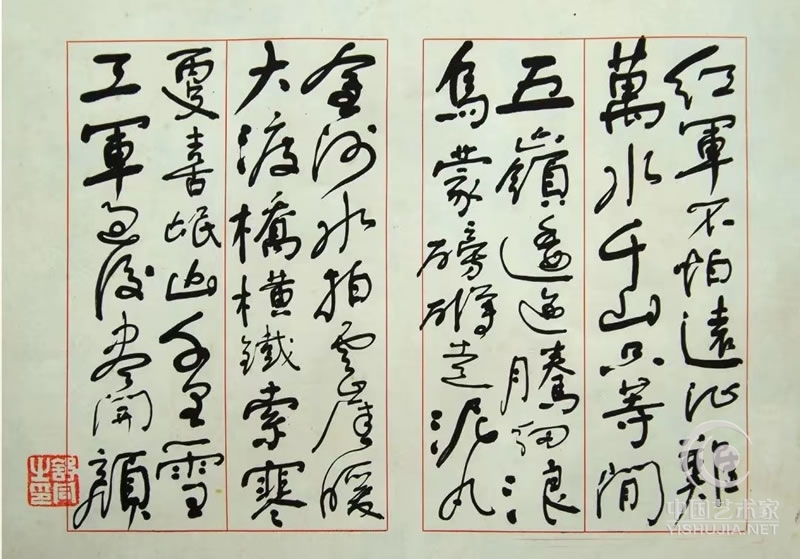 紅軍不怕遠征難
萬水千山只等閒
五嶺逶迤騰細浪
烏蒙磅礴走泥丸
金沙水拍雲崖暖
大渡橋橫鐵索寒
更喜岷山千里雪
三軍過後盡開顏
舒同之印
中国艺术家
YISHUJIA.NET